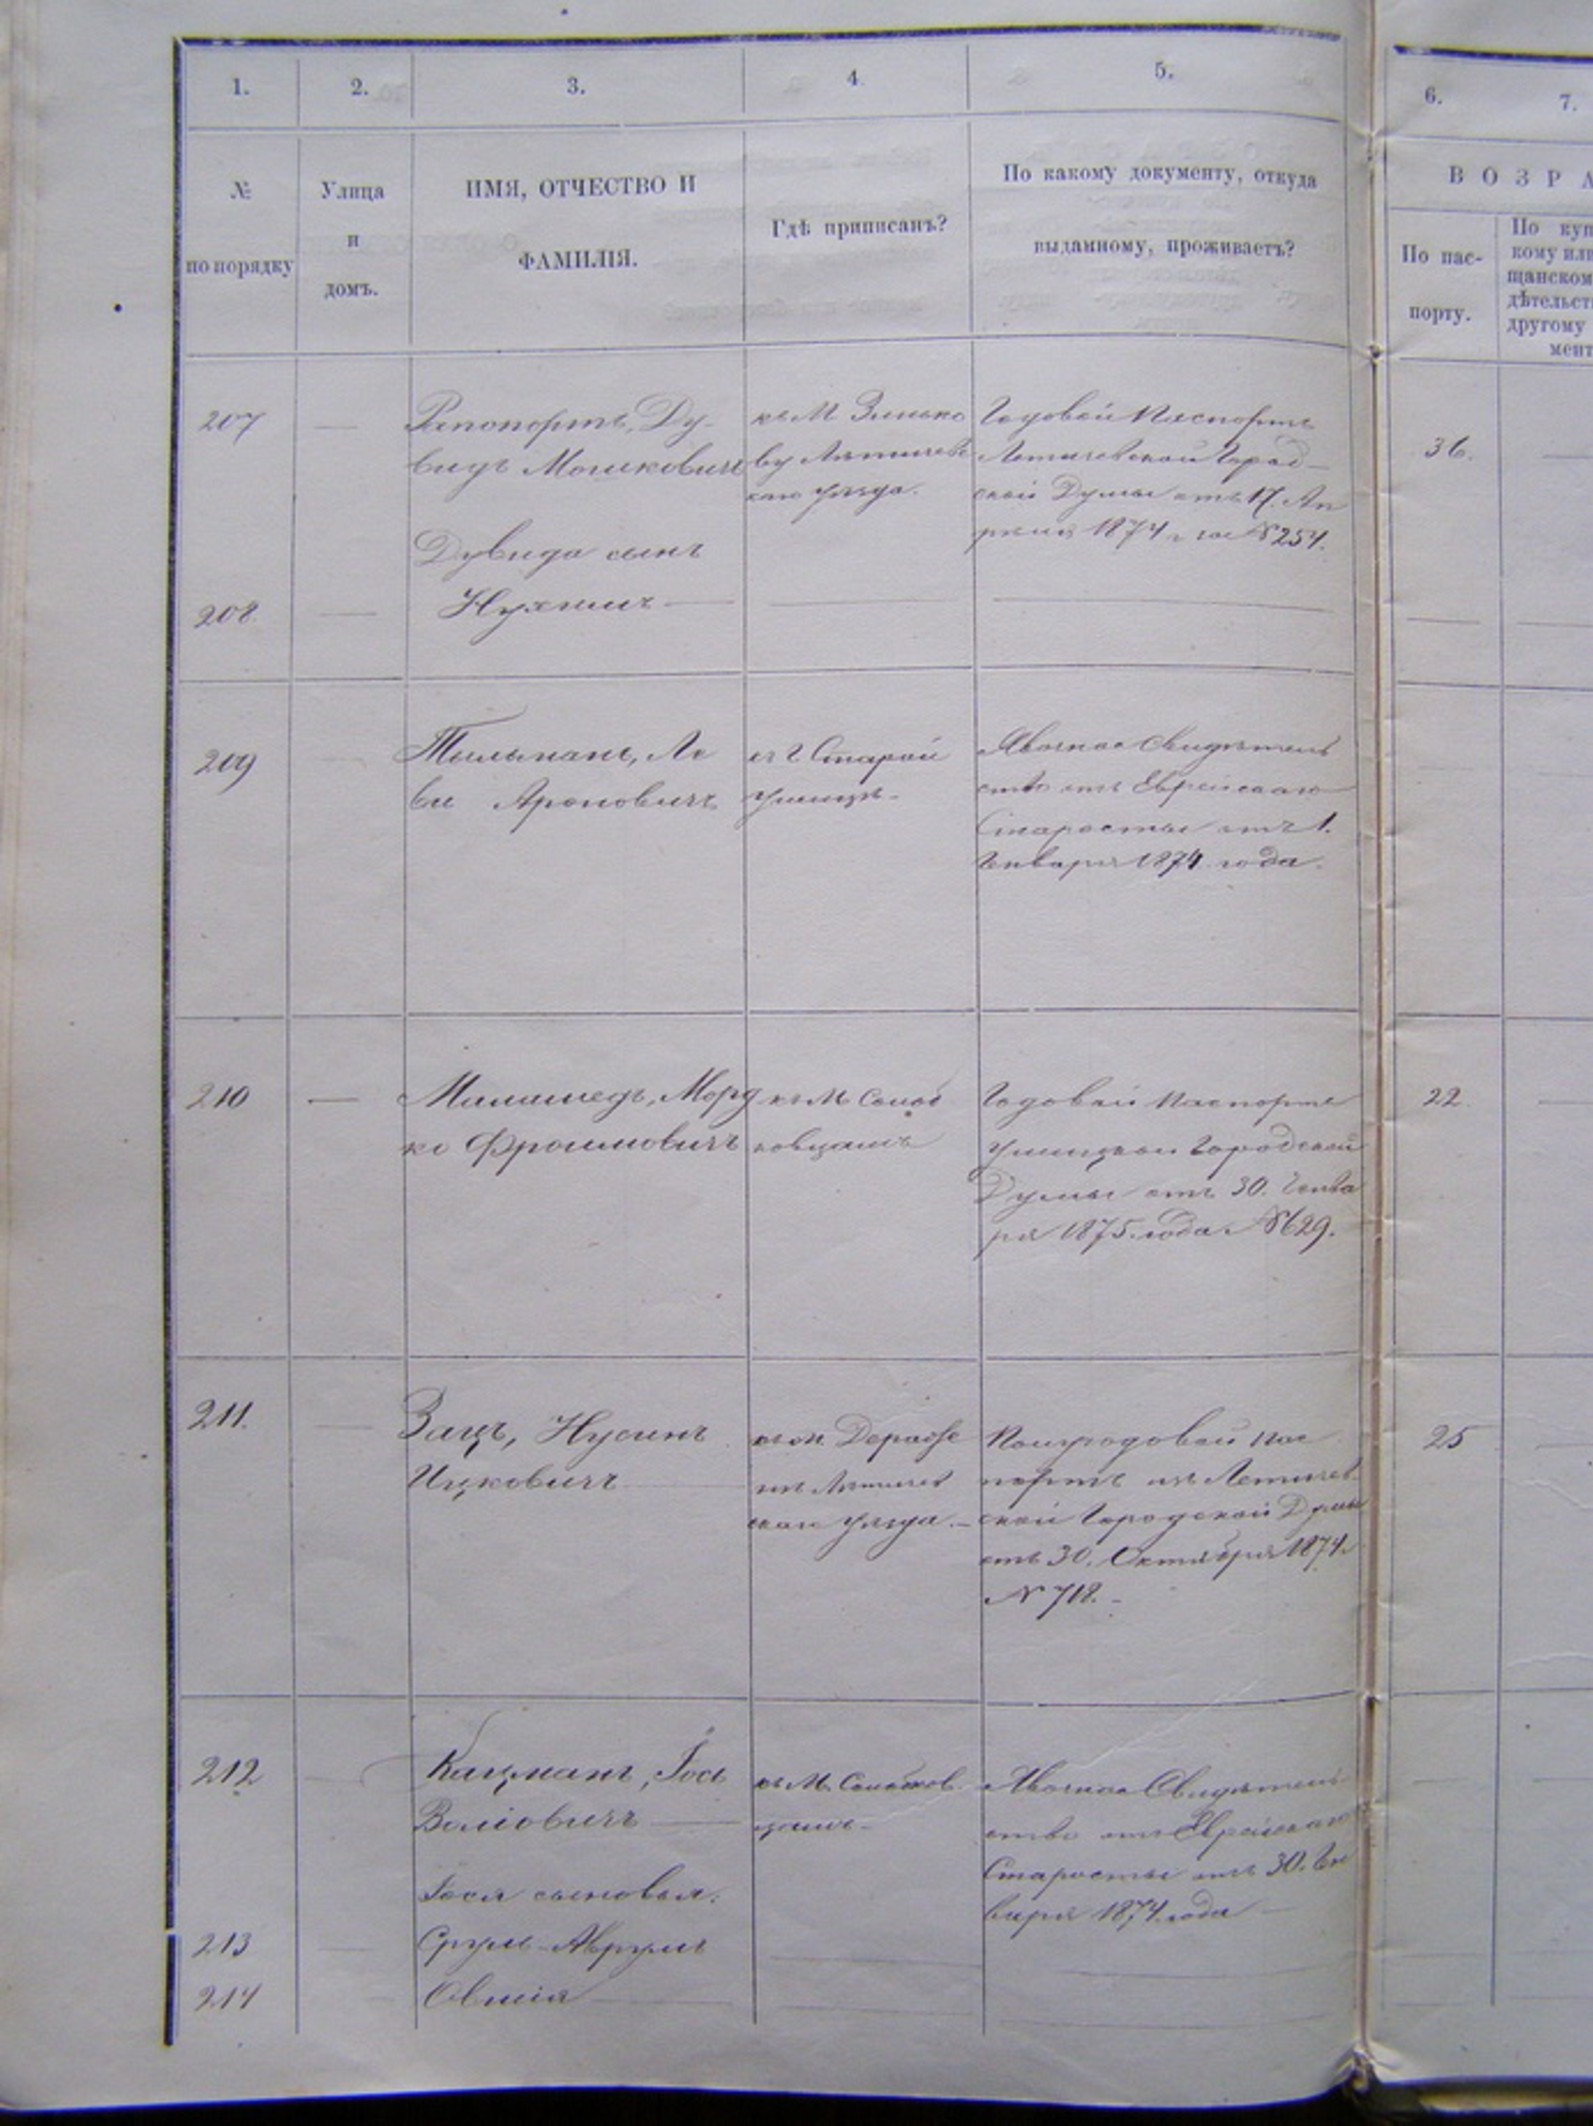 1.
2.
3.
4
5.
6.
7.
№
по порядку
Улица
и
домъ.
ИМЯ, ОТЧЕСТВО И
ФАМИЛІЯ.
Гдѣ приписанъ?
По какому документу, откуда
выданному, проживаетъ?
ВОЗРА
По пас-
порту.
По куп
кому или
щанском
дѣтельст
другому
мент
207
Рапопортъ, Ду-
видъ Мошковичъ
къ М Зинько
ву Летичевс
каго уѣзда.
Годовой Паспортъ
Летичевской Город-
ской Думы отъ 17. Ап
рѣля 1874 г за № 254.
36.
Дувида сынъ
208.
Нухимъ
209
Тыльманъ, Ле
ви Ароновичъ
къ г Старой
Ушицѣ-
Явочное Свидѣтель
ство отъ Еврейскаго
Старосты отъ 1.
Генваря 1874 года.
210
Маламедъ, Морд
ко Фроимовичъ
къ М Солоб
ковцамъ
Годовой Паспортъ
Ушицкой Городской
Думы отъ 30. Генва
ря 1875 года № 629.
22.
211.
Зацъ, Нусинъ
Ицковичъ
къ м. Деражс
нѣ Летичев
скаго уѣзда.-
Полугодовой пас
портъ изъ Летичев
ской Городской Думы
отъ 30. Октября 1874
№ 718.-
25
212
Кацманъ, Іось
Волковичъ
къ М. Солобков
цамъ-
Явочное Свидѣтель
ство отъ Еврейскаго
Старосты отъ 30. Ген
варя 1874 года
Іося сыновья:
213
Сруль-Аврумъ
214
Овшія